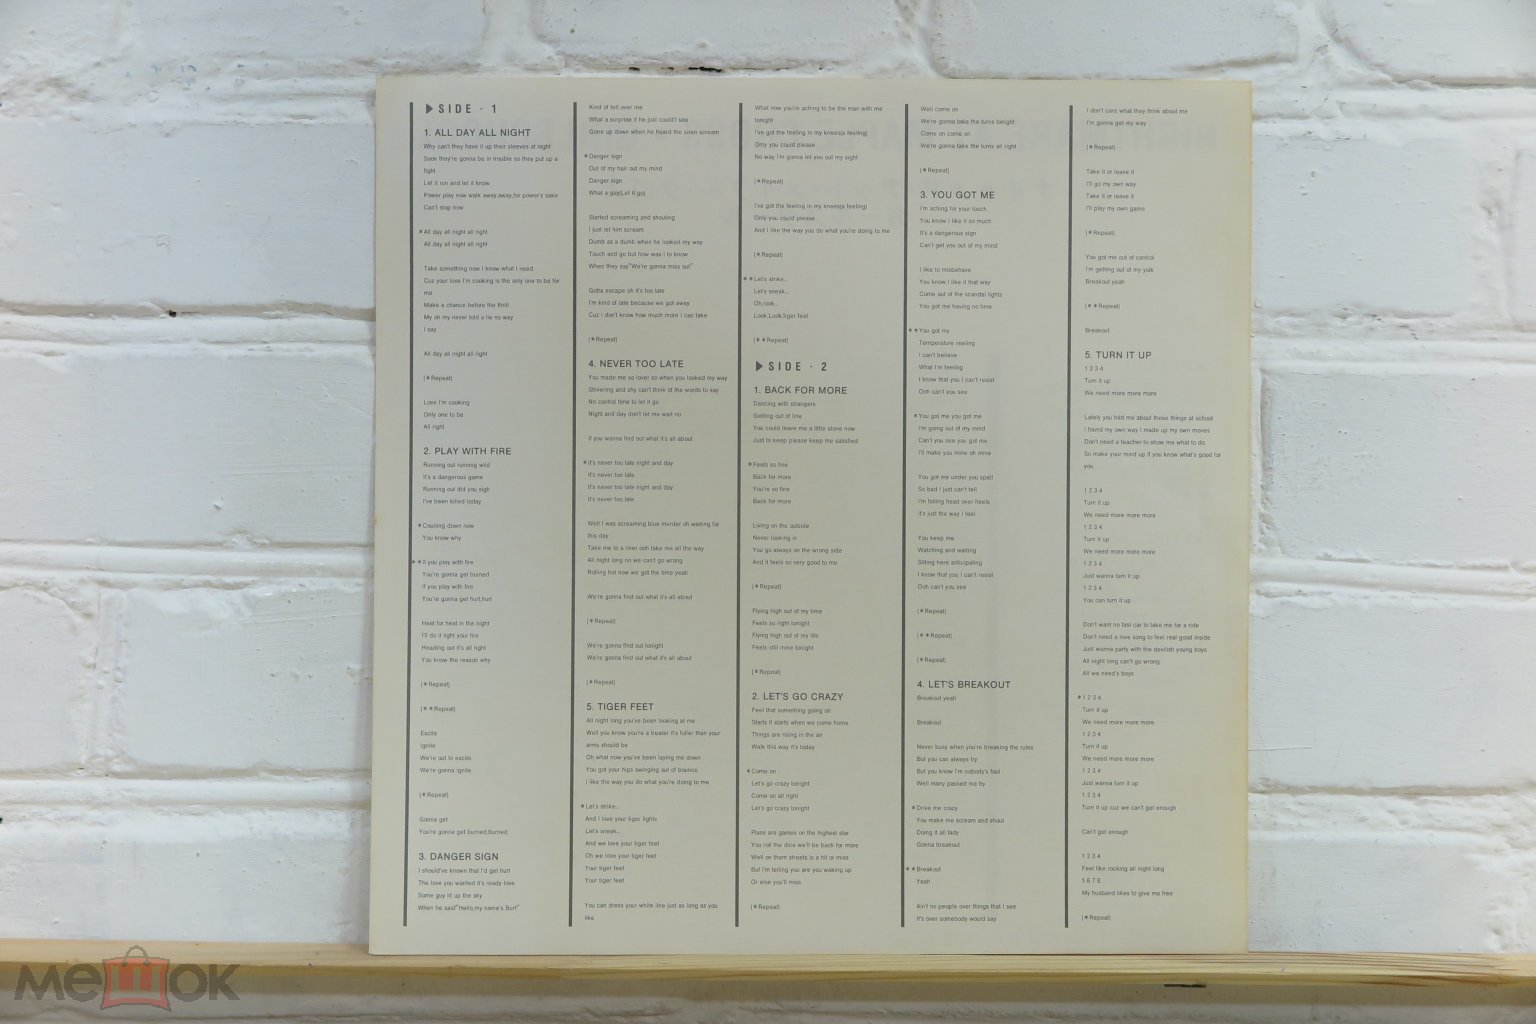 ▶SIDE · 1
1. ALL DAY ALL NIGHT
Why can't they have it up their sleeves at night
Soon they're gonna be in trouble so they put up a
fight
Let it run and let it know
Power play now walk away,away,for power's sake
Can't stop now
*All day all night all right
All day all night all right
Take something now I know what I need
Cuz your love I'm cooking is the only one to be for
me
Make a chance before the thrill
My oh my never told a lie no way
I say
All day all night all right
(*Repeat)
Love I'm cooking
Only one to be
All right
2. PLAY WITH FIRE
Running out running wild
It's a dangerous game
Running out did you sigh
I've been killed today
*Couning down now
You know why
**If you play with fire
You're gonna get burned
If you play with fire
You're gonna get hurt,hurt
Heat for heat in the night
I'll do it light your fire
Heading out it's all right
You know the reason why
(*Repeat)
(**Repeat)
Excite
Ignite
We're out to excite
We're gonna ignite
(*Repeat)
Gonna get
You're gonna get burned,burned
3. DANGER SIGN
I should've known that I'd get hurt
The love you wanted it's ready love
Some guy lit up the sky
When he said"Hello,my name's Burt"
Kind of fell over me
What a surprise if he just could'l see
Gone up down when he heard the siren scream
*Danger sign
Out of my hair out my mind
Danger sign
What a guy(Let it go)
Started screaming and shouting
I just let him scream
Dumb as a dumb when he looked my way
Touch and go but how was I to know
When they say"We're gonna miss out"
Gotta escape oh it's too late
I'm kind of late because we got away
Cuz I don't know how much more I can take
(*Repeat)
4. NEVER TOO LATE
You made me so lover so when you looked my way
Shivering and shy can't think of the words to say
No control time to let it go
Night and day don't let me wait no
If you wanna find out what it's all about
*It's never too late night and day
It's never too late
It's never too late night and day
It's never too late
Well I was screaming blue murder oh waiting for
this day
Take me to a river ooh take me all the way
All night long no we can't go wrong
Rolling hot now we got the time yeah
We're gonna find out what it's all about
(*Repeat)
We're gonna find out tonight
We're gonna find out what it's all about
(*Repeat)
5. TIGER FEET
All night long you've been looking at me
Well you know you're a treater it's fuller than your
arms should be
Oh what now you've been laying me down
You got your hips swinging out of bounce
I like the way you do what you're doing to me
*Let's strike...
And I love your tiger lights
Let's sneak...
And we love your tiger feet
Oh we love your tiger feet
Your tiger feet
Your tiger feet
You can dress your white line just as long as you
like
What now you're aching to be the man with me
tonight
I've got the feeling in my knees(a feeling)
Only you could please
No way I'm gonna let you out my sight
(*Repeat)
I've got the feeling in my knees(a feeling)
Only you could please
And I like the way you do what you're doing to me
(*Repeat)
**Let's strike...
Let's sneak...
Oh,look...
Look,Look,tiger feet
(**Repeat)
▶SIDE · 2
1. BACK FOR MORE
Dancing with strangers
Getting out of line
You could leave me a little alone now
Just to keep please keep me satisfied
*Feels so fine
Back for more
You're so fine
Back for more
Living on the outside
Never looking in
You go always on the wrong side
And it feels so very good to me
(*Repeat)
Flying high out of my time
Feels so right tonight
Flying high out of my life
Feels still mine tonight
(*Repeat)
2. LET'S GO CRAZY
Feel that something going on
Starts it starts when we come home
Things are rising in the air
Walk this way it's today
*Come on
Let's go crazy tonight
Come on all right
Let's go crazy tonight
Plans are games on the highest star
You roll the dice we'll be back for more
Well on them streets is a hit or miss
But I'm telling you are you waking up
Or else you'll miss
(*Repeat)
Well come on
We're gonna take the turns tonight
Come on come on
We're gonna take the turns all right
(*Repeat)
3. YOU GOT ME
I'm aching for your touch
You know I like it so much
It's a dangerous sign
Can't get you out of my mind
I like to misbehave
You know I like it that way
Come out of the scandal lights
You got me having no time
**You got my
Temperature reeling
I can't believe
What I'm feeling
I know that you I can't resist
Ooh can't you see
*You got me you got me
I'm going out of my mind
Can't you see you got me
I'll make you mine oh mine
You got me under you spell
So bad I just can't tell
I'm falling head over heels
It's just the way I feel
You keep me
Watching and waiting
Sitting here anticipating
I know that you I can't resist
Ooh can't you see
(*Repeat)
(**Repeat)
(*Repeat)
4. LET'S BREAKOUT
Breakout yeah
Breakout
Never busy when you're breaking the rules
But you can always try
But you know I'm nobody's fool
Well many passed me by
*Drive me crazy
You make me scream and shout
Doing it all lady
Gonna breakout
**Breakout
Yeah
Ain't no people over things that I see
It's over somebody would say
I don't care what they think about me
I'm gonna get my way
(*Repeat)
Take it or leave it
I'll go my own way
Take it or leave it
I'll play my own game
(*Repeat)
You got me out of control
I'm getting out of my yolk
Breakout yeah
(**Repeat)
Breakout
5. TURN IT UP
1 2 3 4
Turn it up
We need more more more
Lately you told me about these things at school
I found my own way I made up my own moves
Don't need a teacher to show me what to do
So make your mind up if you know what's good for
you
1 2 3 4
Turn it up
We need more more more
1 2 3 4
Turn it up
We need more more more
1 2 3 4
Just wanna turn it up
1 2 3 4
You can turn it up
Don't want no fast car to take me for a ride
Don't need a love song to feel real good inside
Just wanna party with the devilish young boys
All night long can't go wrong
All we need's boys
*1 2 3 4
Turn it up
We need more more more
1 2 3 4
Turn it up
We need more more more
1 2 3 4
Just wanna turn it up
1 2 3 4
Turn it up cuz we can't get enough
Can't get enough
1 2 3 4
Feel like rocking all night long
5 6 7 8
My husband likes to give me free
(*Repeat)
мешок